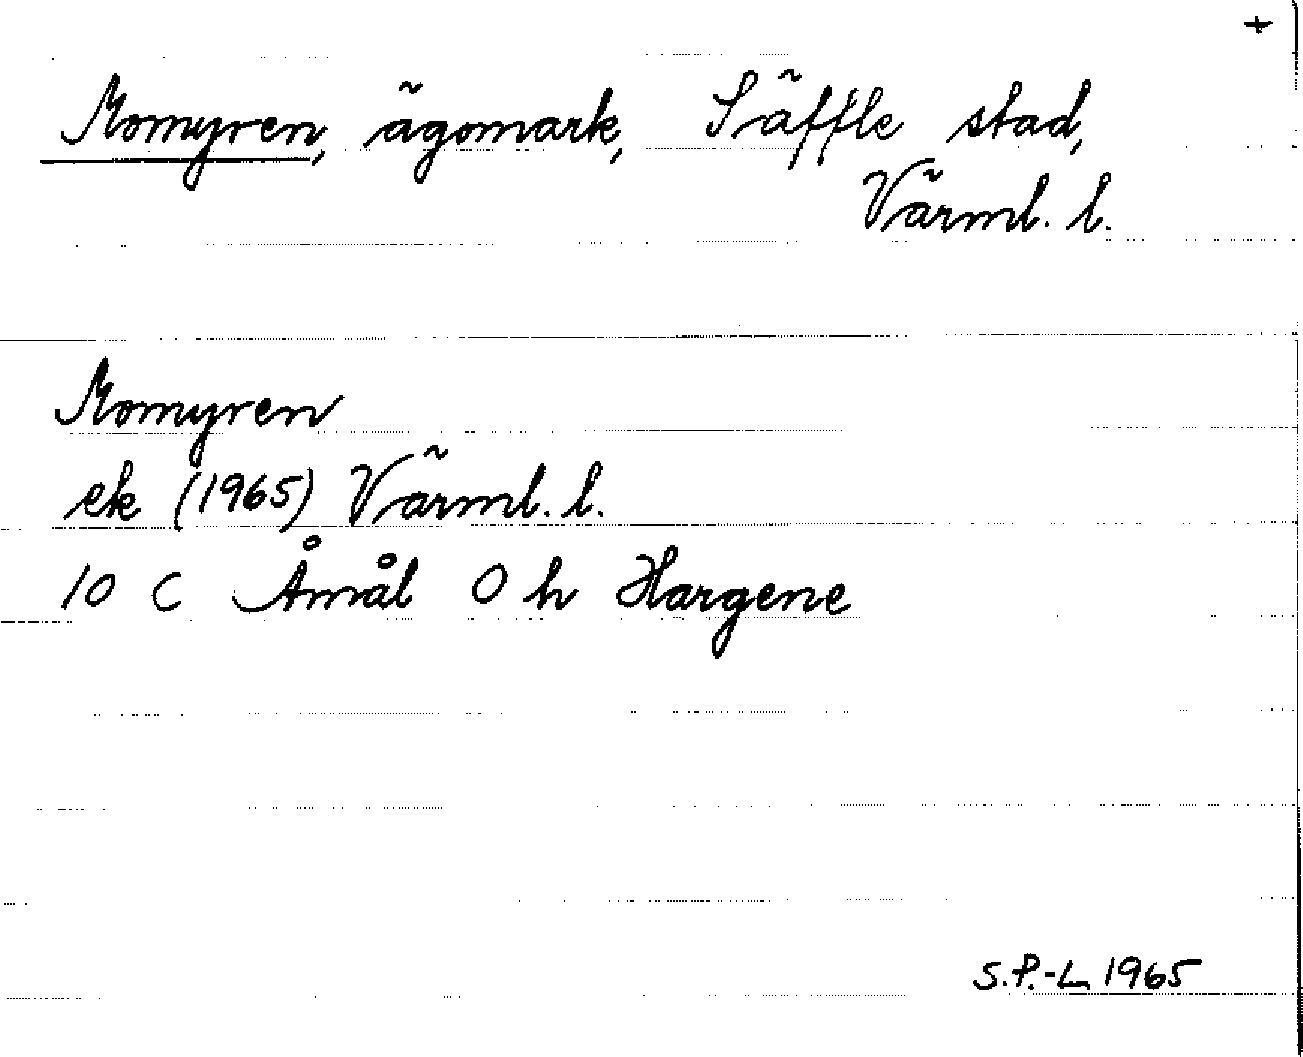 +
Momyren, ägomark, Säffle stad,
Värml. l.
Momyren
ek (1965) Värml. l.
10 C Åmål O h Hargene
S.P.-L 1965